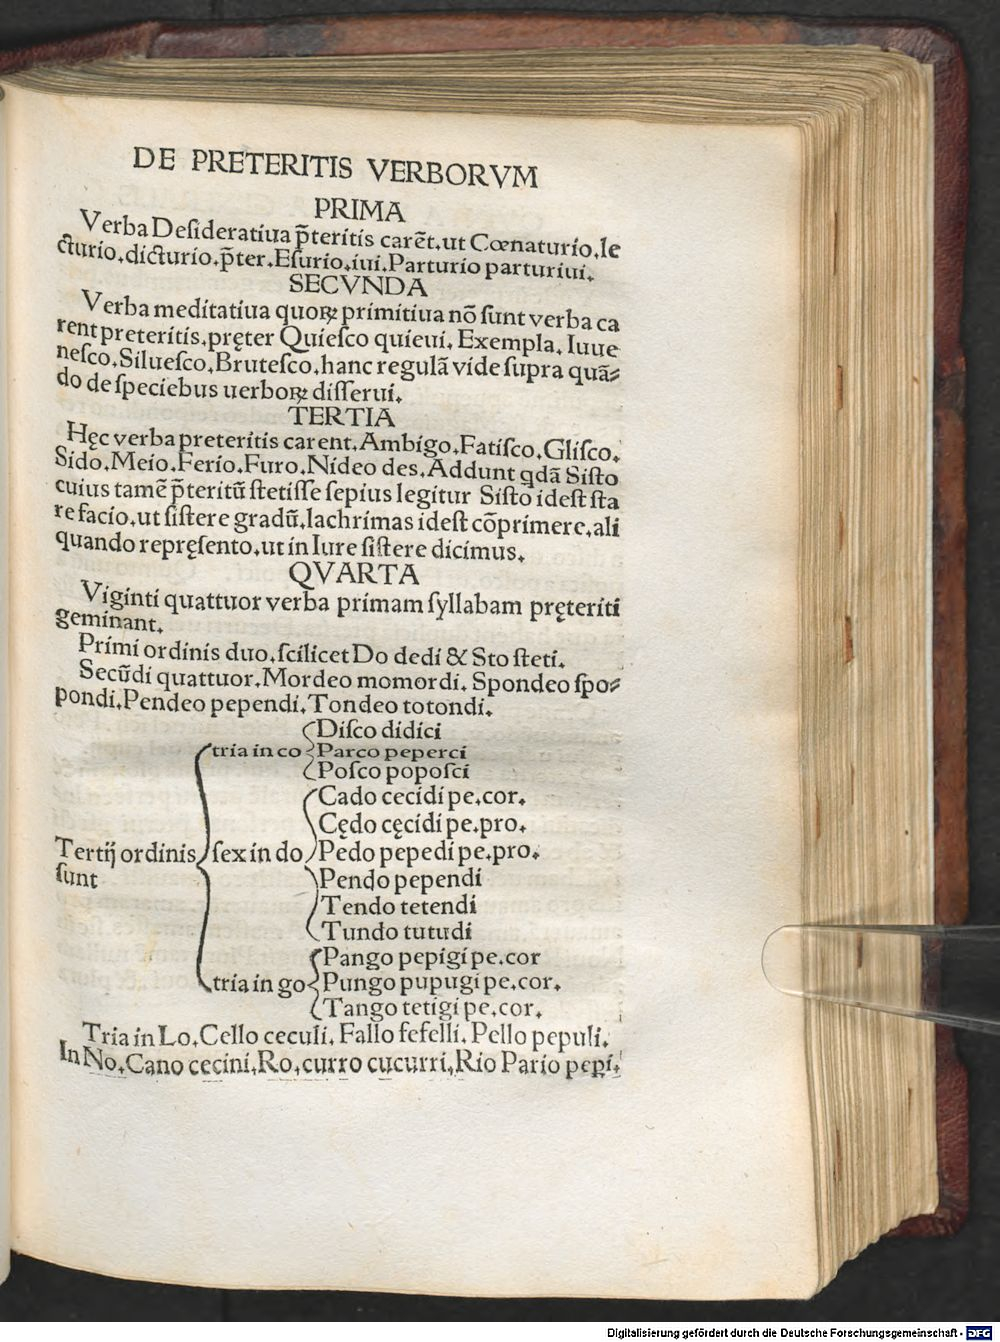 DE PRETERITIS VERBORVM
PRIMA
Verba Deſideratiua p̄teritis carēt.ut Cœnaturio.le
cturio.dicturio.p̄ter.Eſurio.iui.Parturio parturiui.
SECVNDA
Verba meditatiua quoꝝ primitiua nō ſunt verba ca
rent preteritis.pręter Quieſco quieui. Exempla. Iuue
neſco.Silueſco.Bruteſco.hanc regulā vide ſupra quā⸗
do de ſpeciebus uerboꝝ diſſerui.
TERTIA
Hęc verba preteritis carent.Ambigo.Fatiſco.Gliſco.
Sido.Meio.Ferio.Furo.Nideo des.Addunt qdā Siſto
cuius tamē p̄teritū ſtetiſſe ſepius legitur Siſto ideſt ſta
re facio.ut ſiſtere gradū.lachrimas ideſt cōprimere.ali
quando repręſento.ut in Iure ſiſtere dicimus.
QVARTA
Viginti quattuor verba primam ſyllabam pręteriti
geminant.
Primi ordinis duo.ſcilicet Do dedi & Sto ſteti.
Secūdi quattuor.Mordeo momordi. Spondeo ſpo⸗
pondi.Pendeo pependi.Tondeo totondi.
Diſco didici
tria in co Parco peperci
Poſco popoſci
Cado cecidi pe.cor.
Cędo cęcidi pe.pro.
Tertij ordinis ſex in do Pedo pepedi pe.pro.
ſunt Pendo pependi
Tendo tetendi
Tundo tutudi
Pango pepigi pe.cor
tria in go Pungo pupugi pe.cor.
Tango tetigi pe.cor.
Tria in Lo.Cello ceculi. Fallo fefelli. Pello pepuli.
In No.Cano cecini.Ro.curro cucurri.Rio Pario pepi.
Digitalisierung gefördert durch die Deutsche Forschungsgemeinschaft - DFG